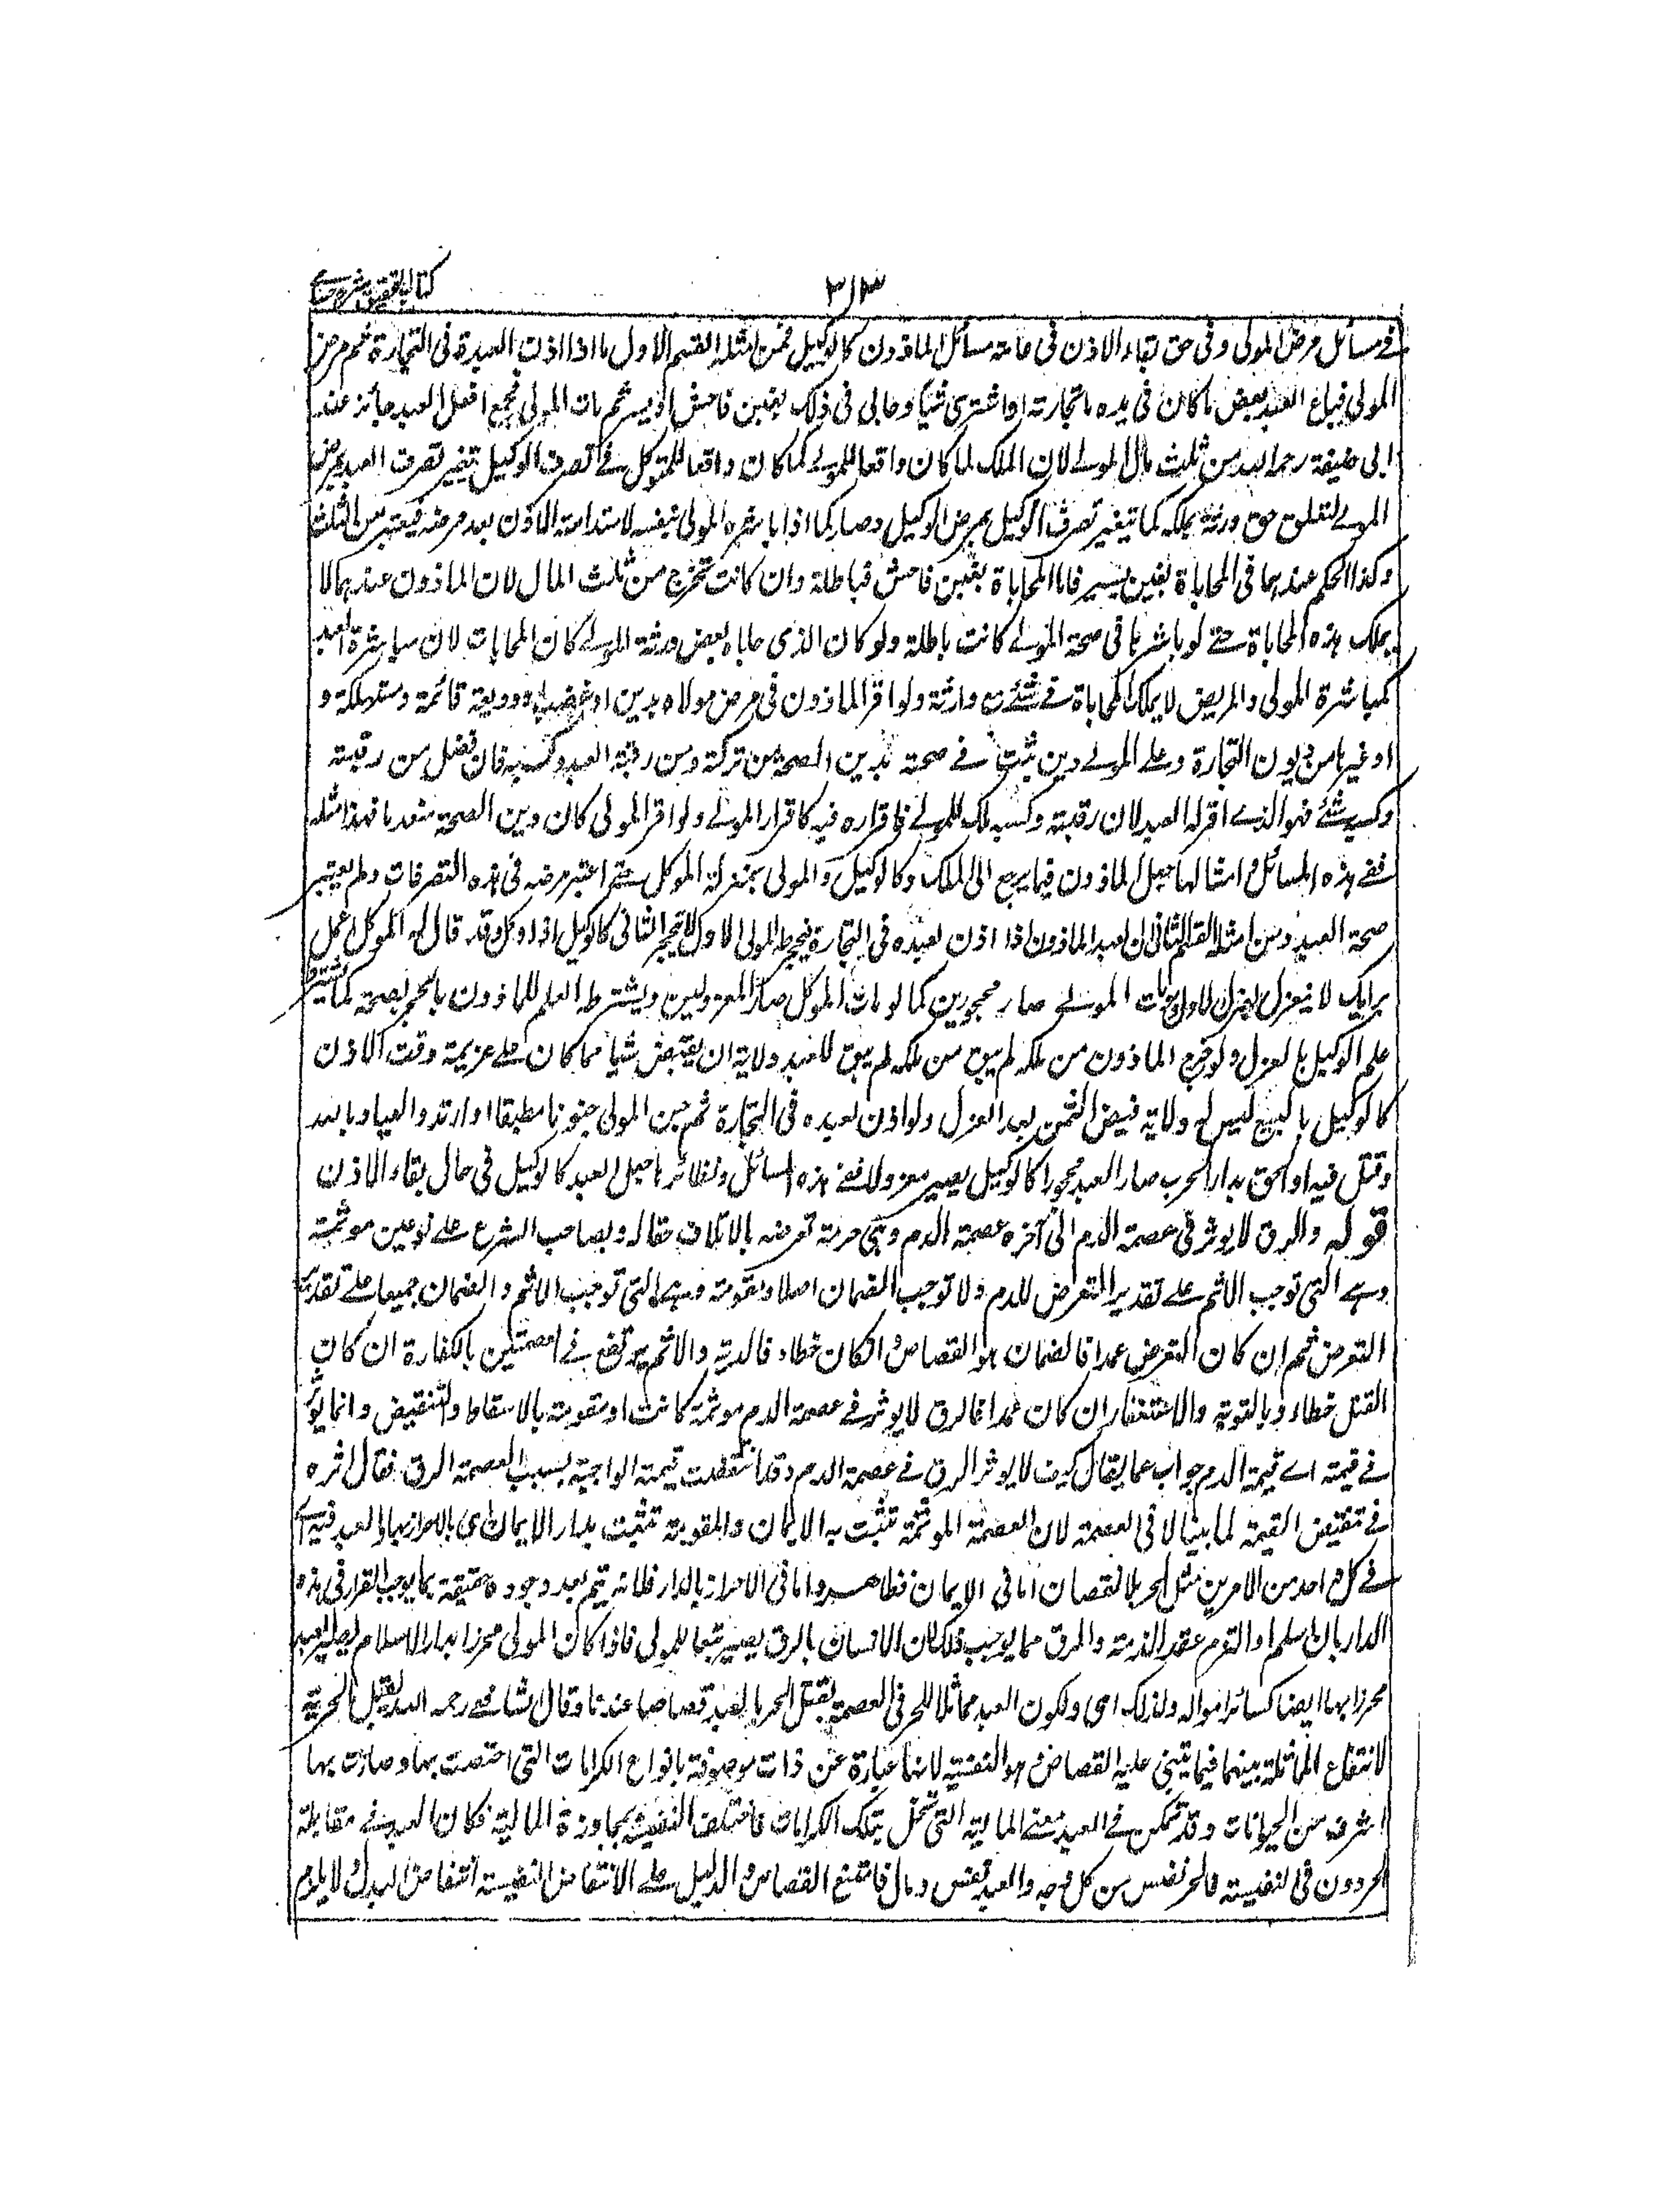 كتاب التحقيق شرح حسامي
٣١٣
في مسائل مرض المولى وفى حق بقاء الاذن فى عامة مسائل الماذون كالوكيل فمن امثلة القسم الاول ما اذا اذن لعبده فى التجارة ثم مرض
المولى فباع العبد بعض ما كان فى يده من تجارته او اشترى شيأ وحابى فى ذلك بغبن فاحش او يسير ثم مات المولى فجميع ما فعل العبد جائز عند
ابى حنيفة رحمه الله من ثلث مال المولى لان الملك لما كان واقعا للمولى كما كان واقعا للموكل في تصرف الوكيل يتغير تصرف العبد بمرض
المولى لتعلق حق ورثته بملكه كما يتغير تصرف الوكيل بمرض الوكيل وصار كما اذا باشره المولى بنفسه لاستدامة الاذن بعد مرضه فيعتبر من الثلث
وكذا الحكم عندهما فى المحاباة بغبن يسير فاما المحاباة بغبن فاحش فباطلة وان كانت تخرج من ثلث المال لان الماذون عندهما لا
يملك هذه المحاباة حتى لو باشرها فى صحة المولى كانت باطلة ولو كان الذى حاباه بعض ورثة المولى كان المحابات لان مباشرة العبد
كمباشرة المولى والمريض لا يملك المحاباة في شئ مع وارثه ولو اقر الماذون فى مرض مولاه بدين او غصب او وديعة قائمة ومستهلكة و
او غيرها من ديون التجارة وعلى المولى دين ثبت في صحته بدين الصحة من تركته ومن رقبة العبد وكسبه فان فضل من رقبته
وكسبه شئ فهو الذي اقر له العبد لان رقبته وكسبه ملك للمولى فاقراره فيه كاقرار المولى ولو اقر المولى كان دين الصحة مقدما فهذا مثله
ففي هذه المسائل وامثالها جعل الماذون فيما يرجع الى الملك وكالوكيل والمولى بمنزلة الموكل حتى اعتبر مرضه فى هذه التصرفات ولم يعتبر
صحة العبد ومن امثلة القسم الثانى ان العبد الماذون اذا اذن لعبده فى التجارة فحجر المولى الاول لا يحجر الثانى كالوكيل اذا وكل وقد قال له الموكل اعمل
برايك لا ينعزل بعزل الاول ومات المولى صار محجورين كما لو مات الموكل صارا معزولين ويشترط العلم للماذون بالحجر لصحته كما يشترط
علم الوكيل بالعزل ولو خرج الماذون من ملكه لم يبق من ملكه لم يبق للعبد ولاية ان يقبض شيأ مما كان على غريمه وقت الاذن
كالوكيل بالبيع ليس له ولاية قبض الثمن بعد العزل ولو اذن لعبده فى التجارة ثم جن المولى جنونا مطبقا او ارتد والعياذ بالله
وقتل فيه او لحق بدار الحرب صار العبد محجورا كالوكيل يصير معزولا ففي هذه المسائل ونظائرها جعل العبد كالوكيل فى حال بقاء الاذن
قوله والرق لا يوثر فى عصمة الدم الى آخره عصمة الدم وهى حرمة تعرضه بالاتلاف حقا له ولصاحب الشرع على نوعين موثمة
وهي التى توجب الاثم على تقدير التعرض للدم ولا توجب الضمان اصلا ومقومة وهي التى توجب الاثم والضمان جميعا على تقدير
التعرض ثم ان كان التعرض عمدا فالضمان هو القصاص وان كان خطاء فالدية والاثم يرتفع في العصمتين بالكفارة ان كان
القتل خطاء وبالتوبة والاستغفار ان كان عمدا فالرق لا يوثر في عصمة الدم موثمة كانت او مقومة بالاسقاط والتنقيص وانما يوثر
في قيمته اي قيمة الدم جواب عما يقال كيف لا يوثر الرق في عصمة الدم وقد انتقصت قيمته الواجبة بسبب العصمة الرق فقال اثره
في تنقيص القيمة لما بينا لا فى العصمة لان العصمة الموثمة تثبت به الايمان والمقومة تثبت بدار الايمان اى بالاحراز بها والعبد فيه اي
في كل واحد من الامرين مثل الحر بلا نقصان اما فى الايمان فظاهر واما فى الاحراز بالدار فلانه يتم بعد وجوده حقيقة بما يوجب القرار فى هذه
الدار بان اسلم او التزم عقد الذمة والرق مما يوجب ذلك لان الانسان بالرق يصير تبعا للمولى فاذا كان المولى محرزا بدار الاسلام يصير العبد
محرزا بها ايضا كسائر امواله ولذلك اى ولكون العبد مماثلا للحر فى العصمة يقتل الحر بالعبد قصاصا عندنا وقال الشافعي رحمه الله لا يقتل الحر به
لانتفاء المماثلة بينهما فيما يبتنى عليه القصاص وهو النفسية لانها عبارة عن ذات موصوفة بانواع الكرامات التى اختصت بها وصارت بها
اشرف من الحيوانات وقد تمكن في العبد معنى المالية التى تخل بتلك الكرامات فاختلف النفسية بمجاورة المالية فكان العبد في مقابلة
الحر دون فى النفسية فالحر نفس من كل وجه والعبد نفس ومال فامتنع القصاص والدليل على الانتقاص النفسية انتقاص البدل ولا يلزم